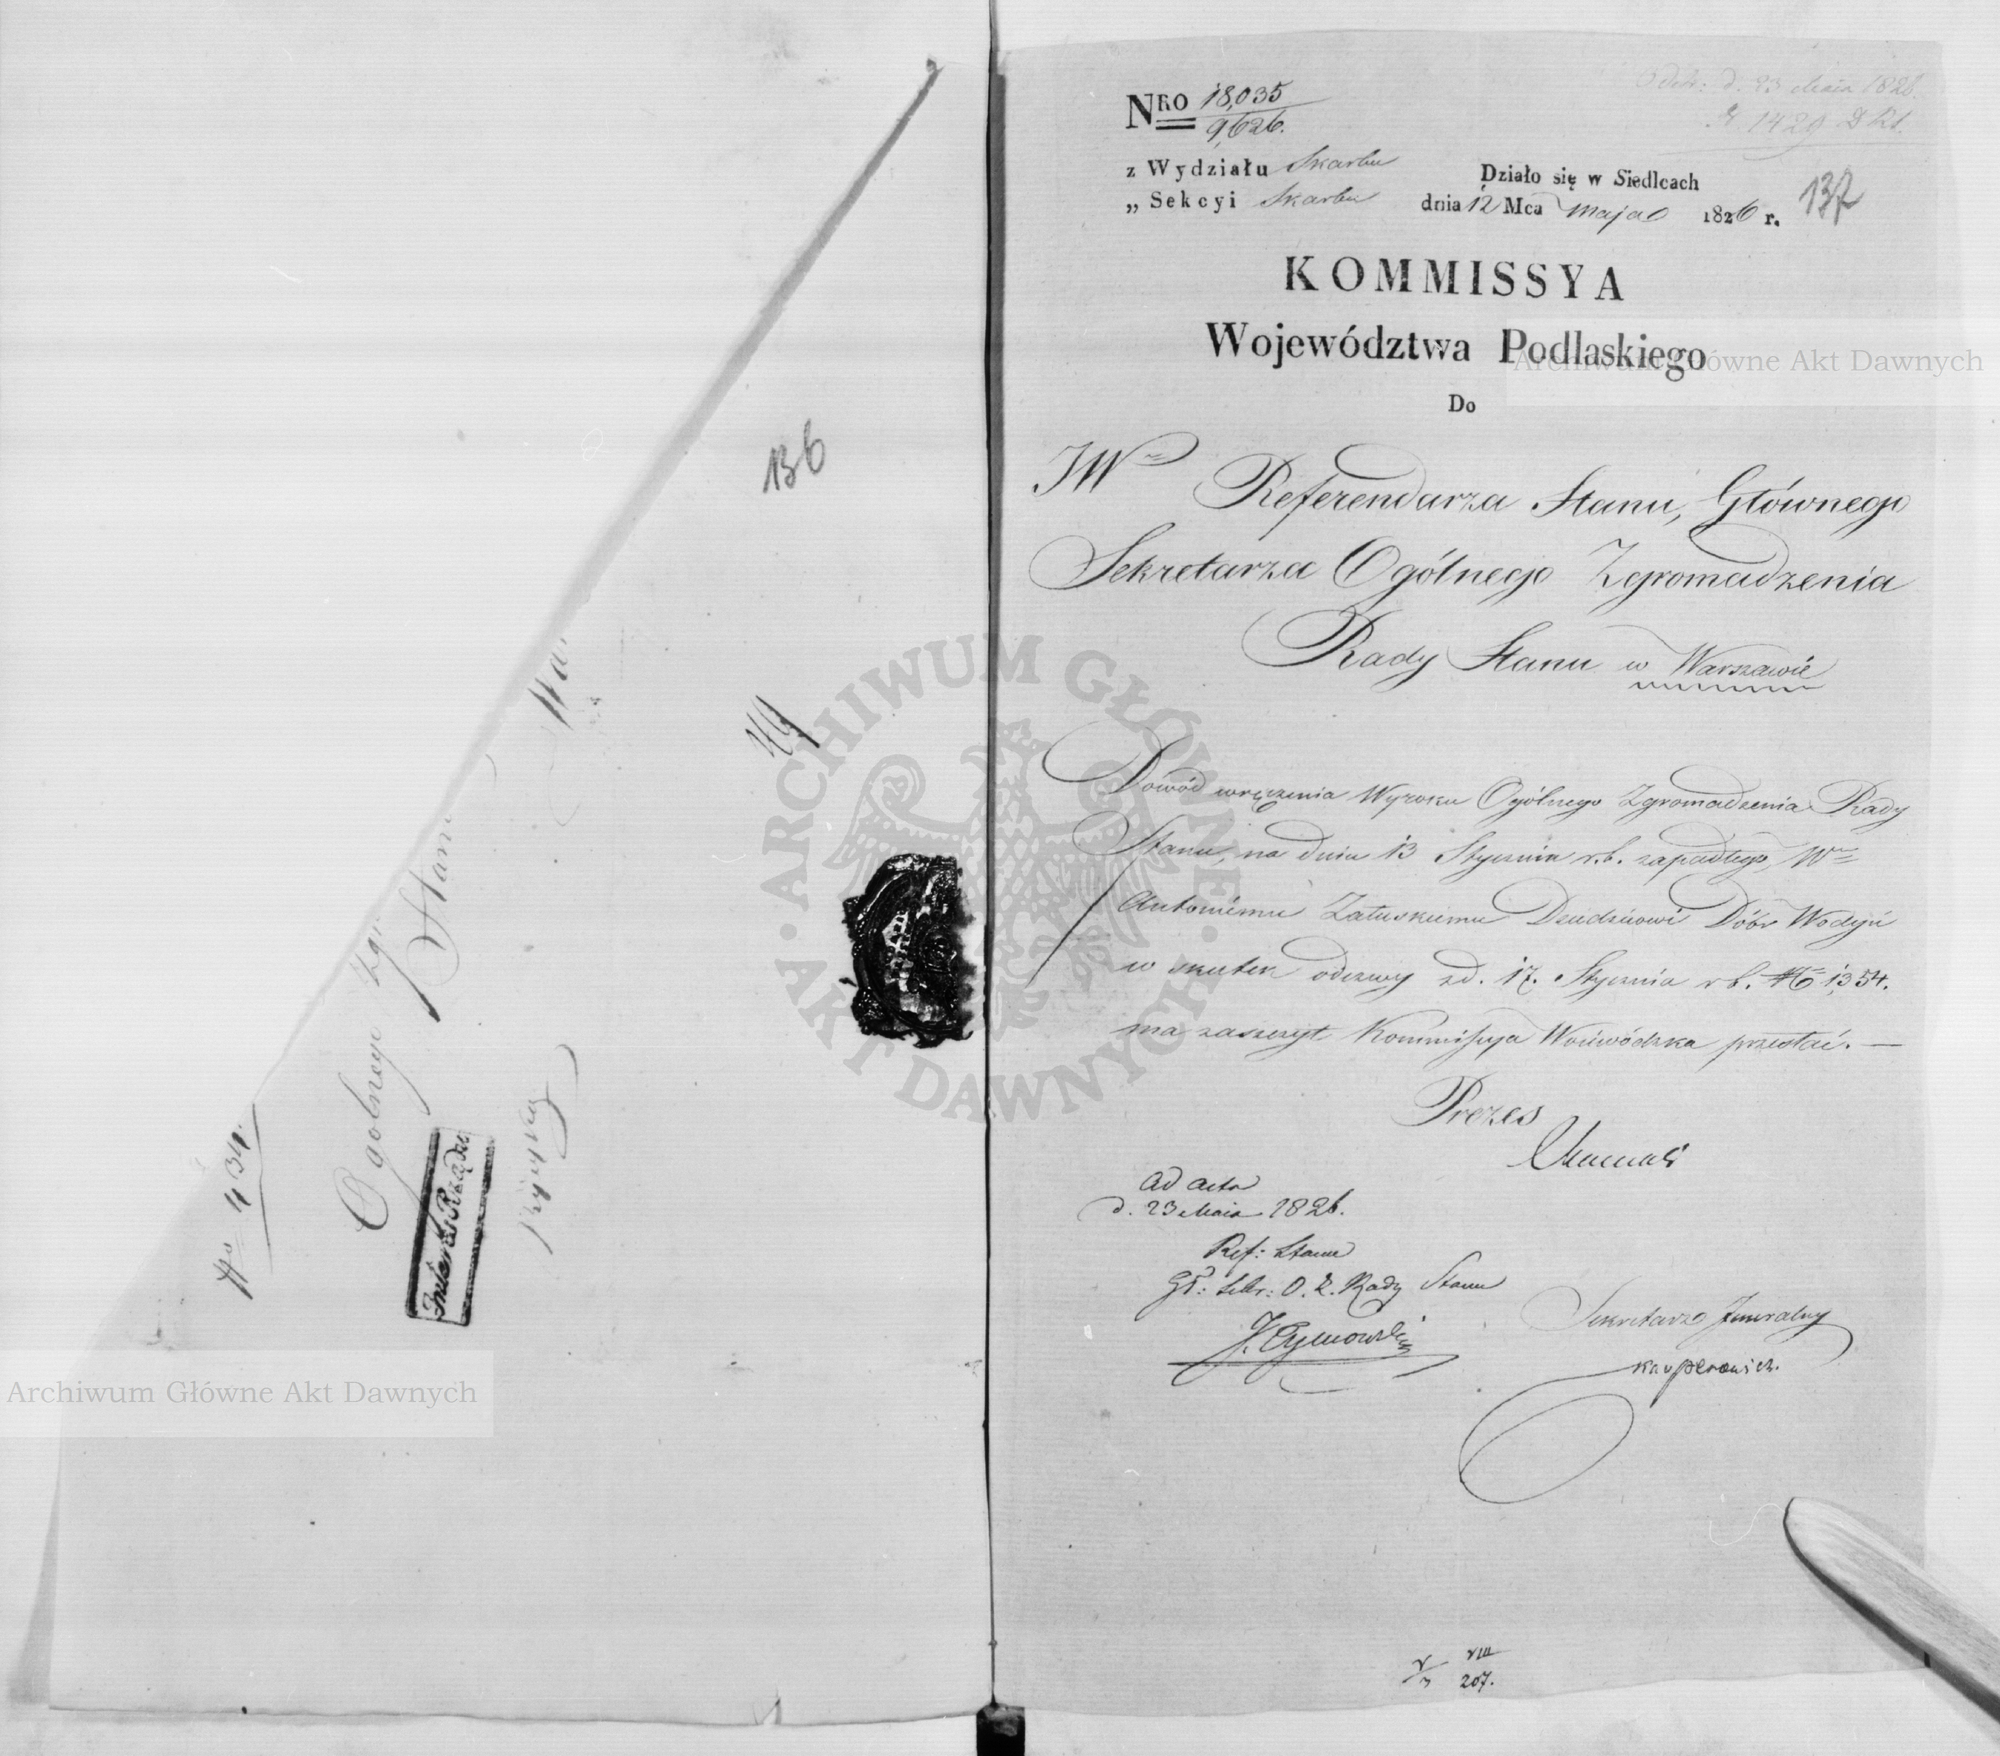 136
No 434.
Ogolnego Zgr
Stanu
War
Interes Rządu
Odeb: d. 23 Maia 1826.
N 1429 D Rt.
NRO 18,035
9,626.
z Wydziału Skarbu
„ Sekcyi Skarbu
Działo się w Siedlcach
dnia 12 Mca maja 1826 r.
137
KOMMISSYA
Województwa Podlaskiego
Do
JW Referendarza Stanu, Głównego
Sekretarza Ogólnego Zgromadzenia
Rady Stanu w Warszawie
Dowód wręczenia Wyroku Ogólnego Zgromadzenia Rady
Stanu, na dniu 13 Stycznia r.b. zapadłego, W
Antoniemu Załuskiemu Dziedzicowi Dóbr Wodyń
w skutek odezwy z d. 17. Stycznia r b. No 1354.
ma zaszczyt Kommissya Woiewódzka przesłać. —
Prezes
Ad acta
d. 23 Maia 1826.
Ref: Stanu
Gł: Sekr: O. Z. Rady Stanu
Sekretarz Jeneralny
VIII
207.
Archiwum Główne Akt Dawnych
ARCHIWUM GŁÓWNE AKT DAWNYCH
Archiwum Główne Akt Dawnych